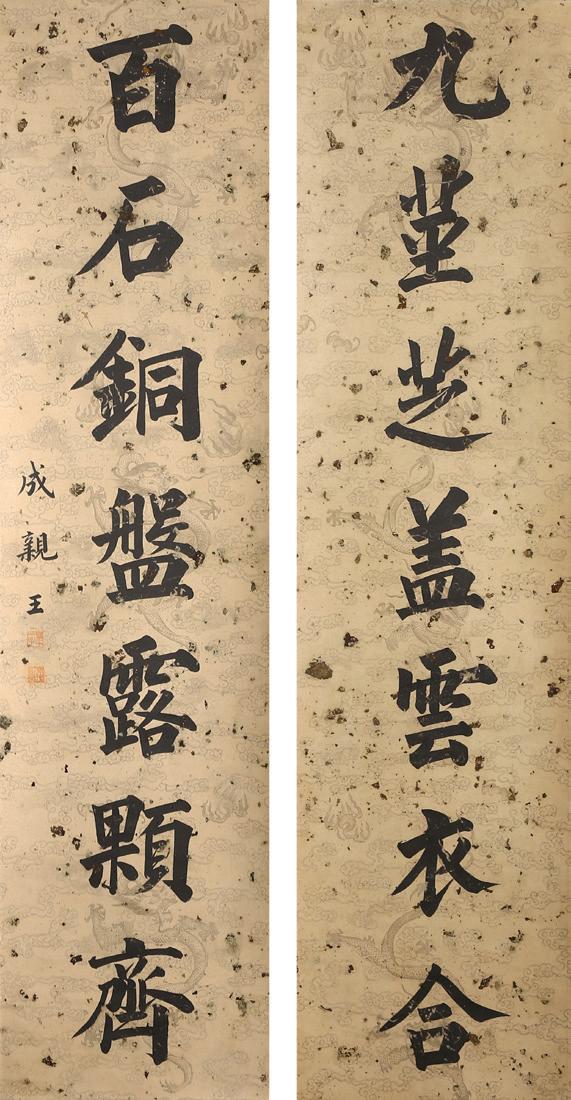 九莖芝盖雲衣合
百石銅盤露顆齊
成親王